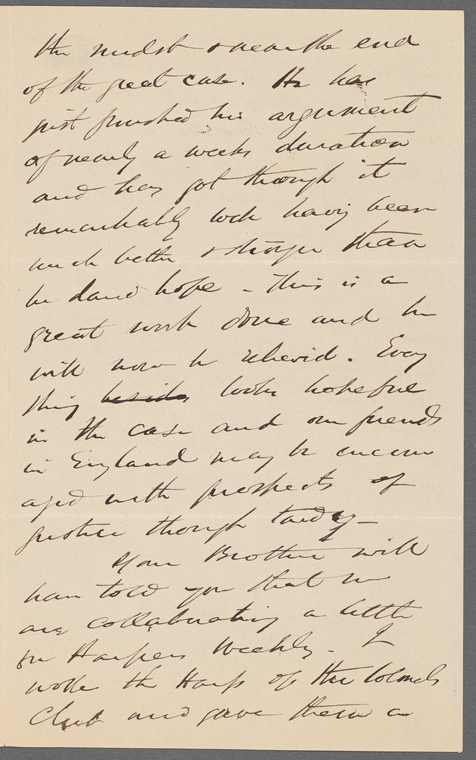 the midst & near the end
of the great case. He has
just finished his argument
of nearly a weeks duration
and has got through it
remarkably well having been
much better & stronger than
he dared hope - This is a
great work done and he
will now be relieved. Every
thing besides looks hopeful
in the case and our friends
in England may be encour
aged with prospects of
justice though tardy -
Your Brother will
have told you that we
are collaborating a little
for Harpers Weekly. I
wrote the of the Colonels
Club and gave them a